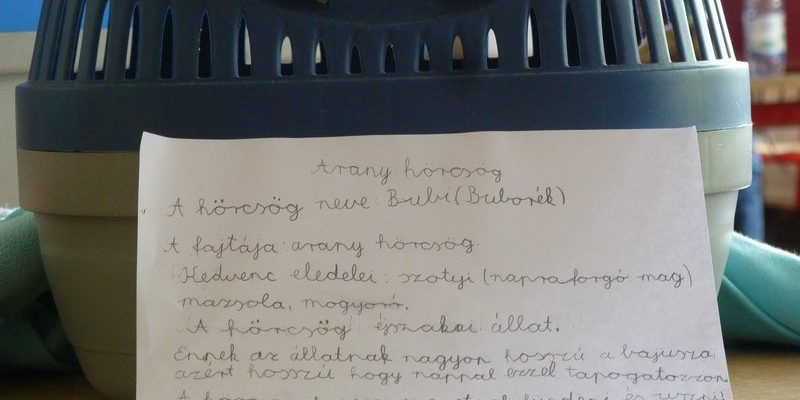 Arany hörcsög
A hörcsög neve: Bubi (Buborék)
A fajtája: arany hörcsög
Kedvenc eledelei: szotyi (napraforgó mag)
mazsola, mogyoró.
A hörcsög éjszakai állat.
Ennek az állatnak nagyon hosszú a bajusza,
azért hosszú hogy nappal ezzel tapogatozzon